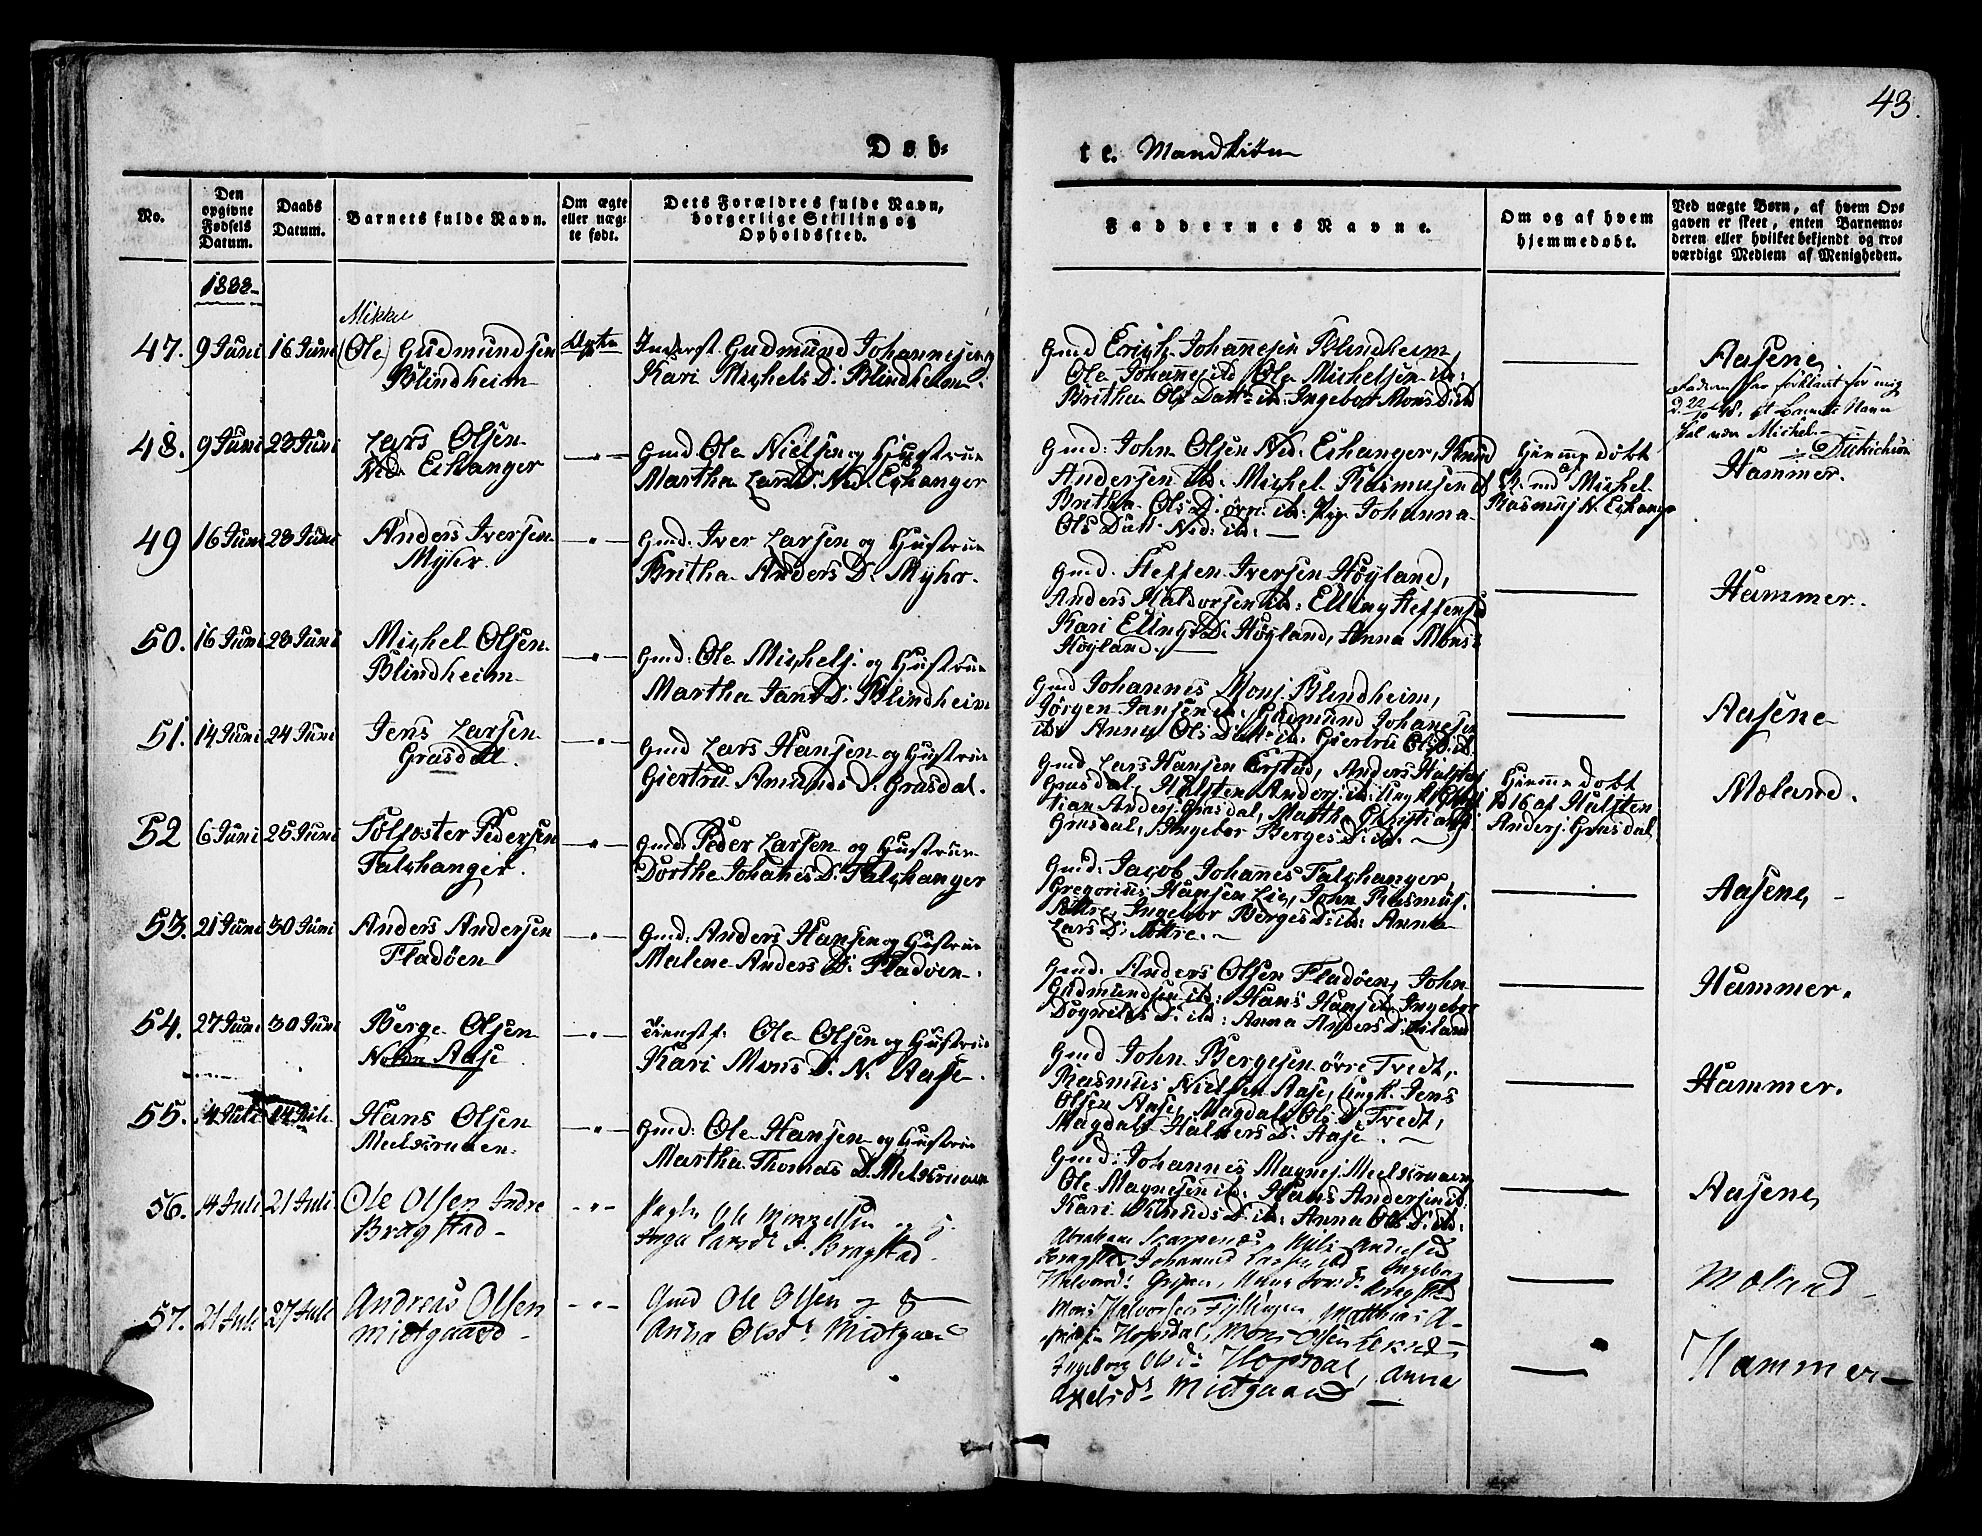 43.
Døb-
te. Mandkiön
No.
Den
opgivne
Fødsels
Datum.
Daabs
Datum.
Barnets fulde Navn.
Om ægte
eller uæg-
te født.
Dets Forældres fulde Navn,
borgerlige Stilling og
Opholdssted.
Faddernes Navne.
Om og af hvem
hjemmedøbt.
Ved uægte Børn, af hvem Op-
gaven er skeet, enten Barnemo-
deren eller hvilket bekjendt og tro-
værdigt Medlem af Menigheden.
1833
47. 9 Juni 16 Juni
Mikkel
(Ole) Gudmundsen
Blindheim
Ægte
Inderst Gudmund Johannesen og
Kari Michels D. Blindheim
Gmd Erich Johannesen Blindheim,
Ole Johannes ibd Ole Michelsen ib:
Britha Ols Datt ib: Ingebor Mons D. ib
Aasene
Faderen har forklaret for mig
at Barnets Navn
skal være Michel.
48. 9 Juni 23 Juni
Lars Olsen
Ned. Eshanger
Gmd Ole Nielsen og Hustrue
Martha Lars D. Ned. Eshanger
Gmd: John Olsen Ned: Eshanger, Knud
Andersen ib: Michel Rasmusen ib
Britha Ols D: øvr: ib: Pig. Johanna
Ols Datt Ned: ib:
Hjemmedøbt
Michel
Rasmusj N. Eshanger
Hammer.
49 16 Juni 23 Juni
Anders Iversen
Myhr.
Gmd. Iver Larsen og Hustrue
Britha Anders D. Myhr.
Gmd. Steffen Iversen Høyland,
Anders Haldorsen ib: Elling Steffens ib
Kari Ellings D: Høyland, Anna Mons
Høyland.
Hammer.
50. 16 Juni 23 Juni
Michel Olsen
Blindheim
Gmd: Ole Michelsj. og Hustrue
Martha Jans D. Blindheim
Gmd Johannes Monsj. Blindheim,
Jørgen Jansen ib., Gudmund Johanesen
ib: Anna Ols Datt ib: Giertru Ols D. ib
Aasene
51. 14 Juni 24 Juni
Jens Larsen
Grasdal.
Gmd Lars Hansen og Hustrue
Giertru Amunds D. Grasdal.
Gmd: Lars Hansen Erstad, Anders Halsten
Grasdal, Halsten Andersj. ib: Ungk. Chris-
tian Andersj. Grasdal, Marth. Christians
Grasdal, Ingebor Berges D. ib.
Hjemmedøbt
d 16 af Halsten
Andersj. Grasdal,
Moland.
52 6 Juni 25 Juni
Sølfæster Pedersen
Falchanger.
Gmd: Peder Larsen og Hustrue
Dorthe Johanes D. Falchanger
Gmd: Jacob Johanes Falchanger,
Gregorius Hansen Lie, John Rasmus.
Ingebor Berges D: ib: Anna
Lars D:
Aasene,
53. 21 Juni 30 Juni
Anders Andersen
Fladøen
Gmd: Anders Hansen og Hustrue
Malene Anders D: Fladøen.
Gmd: Anders Olsen Fladøen, John
Gudmundsen ib: Hans Hans ib, Ingebor
Dogneles D: ib: Anna Anders D.
Hammer.
54. 27 Juni 30 Juni
Berge Olsen
Nedre Aase
Tienest. Ole Olsen og Hustrue
Kari Mons D. N. Aase.
Gmd John Bergesen øvre Tvedt,
Rasmus Nielsen Aase, Ungk. Jens
Olsen Aase, Magdal: Ols D. Tvedt,
Magdal: Halvers D: Aase.
Hammer.
55. 4 Juli 14 Juli
Hans Olsen
Meelsruaen.
Gmd: Ole Hansen og Hustrue
Martha Thomas D. Melsruaen
Gmd: Johannes Magnesj. Meelsruaen,
Ole Magnesen ib: Hans Andersen ib:
Kari Amunds D. ib: Anna Ols D. ib:
Aasene,
56. 14 Juli 21 Juli
Ole Olsen Indre
Bragstad
Ole Monselsen og H.
Inga Larsdr I. Bragstad.
Abraham Scarpenes, Niels Anders ib
Bragstad, Johannes Larsen ib Ingebor
Halvords Anna Larsdr Bragstad
Moland
57. 21 Juli 27 Juli
Andreas Olsen
Midtgaard
Gmd Ole Olsen og H.
Anna Olsdr Midtgaard
Mons Halvorsen Fyllingen, Matthias A-
Hopsdal, Mons Olsen Eknes
Ingeborg Olsdr Hopsdal, Anna
Axelsdr Midtgaard
Hammer